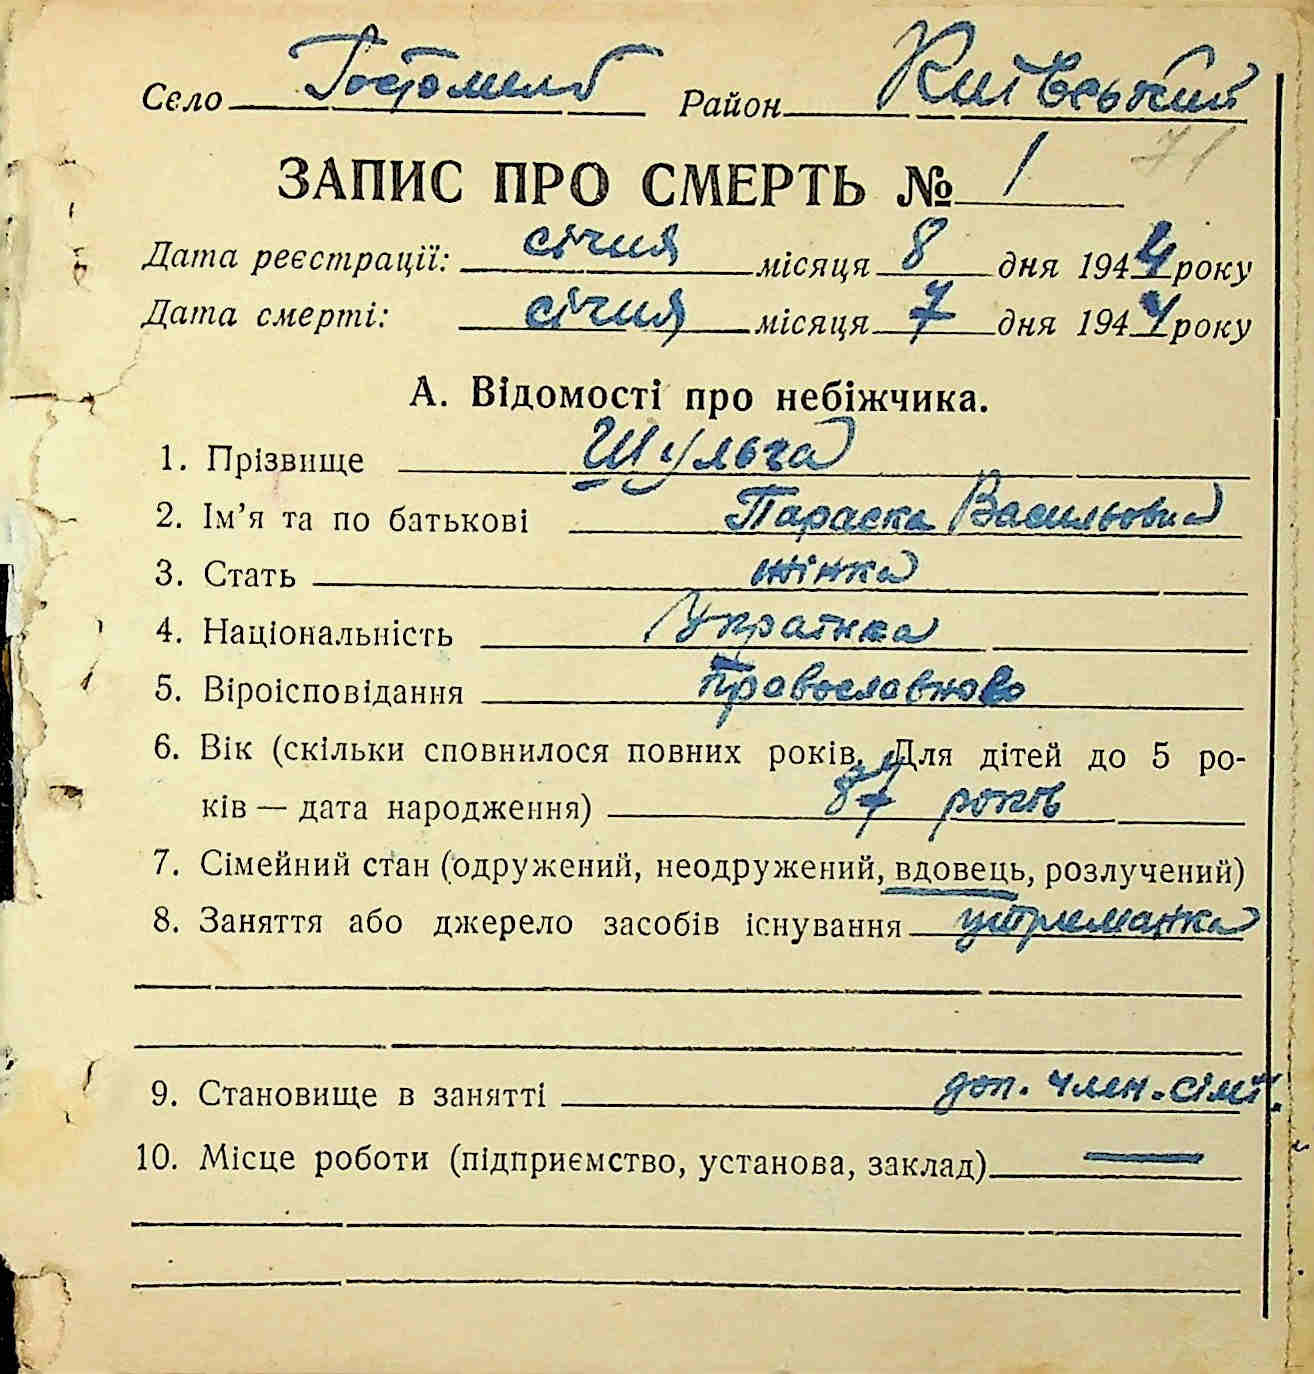 Село Гостомель Район Київський
71
ЗАПИС ПРО СМЕРТЬ № 1
Дата реєстрації: січня місяця 8 дня 1944 року
Дата смерті: січня місяця 7 дня 1944 року
А. Відомості про небіжчика.
1. Прізвище Шульга
2. Ім’я та по батькові Параска Васильовна
3. Стать жінка
4. Національність Українка
5. Віроісповідання православного
6. Вік (скільки сповнилося повних років. Для дітей до 5 ро-
ків — дата народження) 87 років
7. Сімейний стан (одружений, неодружений, вдовець, розлучений)
8. Заняття або джерело засобів існування утриманка
9. Становище в занятті доп. член. сімї.
10. Місце роботи (підприємство, установа, заклад) —